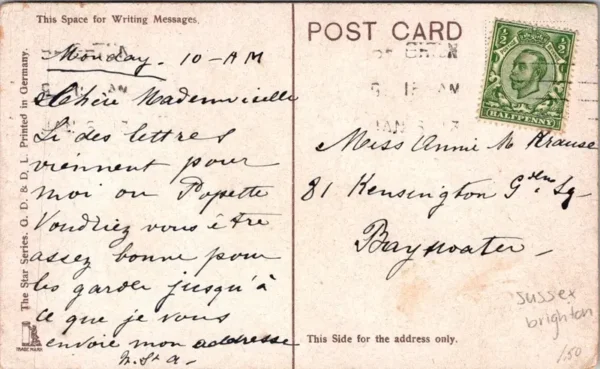 This Space for Writing Messages.
Monday. 10-AM
Chère Mademoiselle
Si des lettres
viennent pour
moi ou Popette
Voudriez vous être
assez bonne pour
les garder jusqu'à
ce que je vous
envoie mon addresse
The Star Series. G. D. & D. L. Printed in Germany.
TRADE MARK
POST CARD
½ ½
HALFPENNY
Miss Annie M Krause
81 Kensington Gdns. Sq
Bayswater
sussex
brighton
1.50
This Side for the address only.